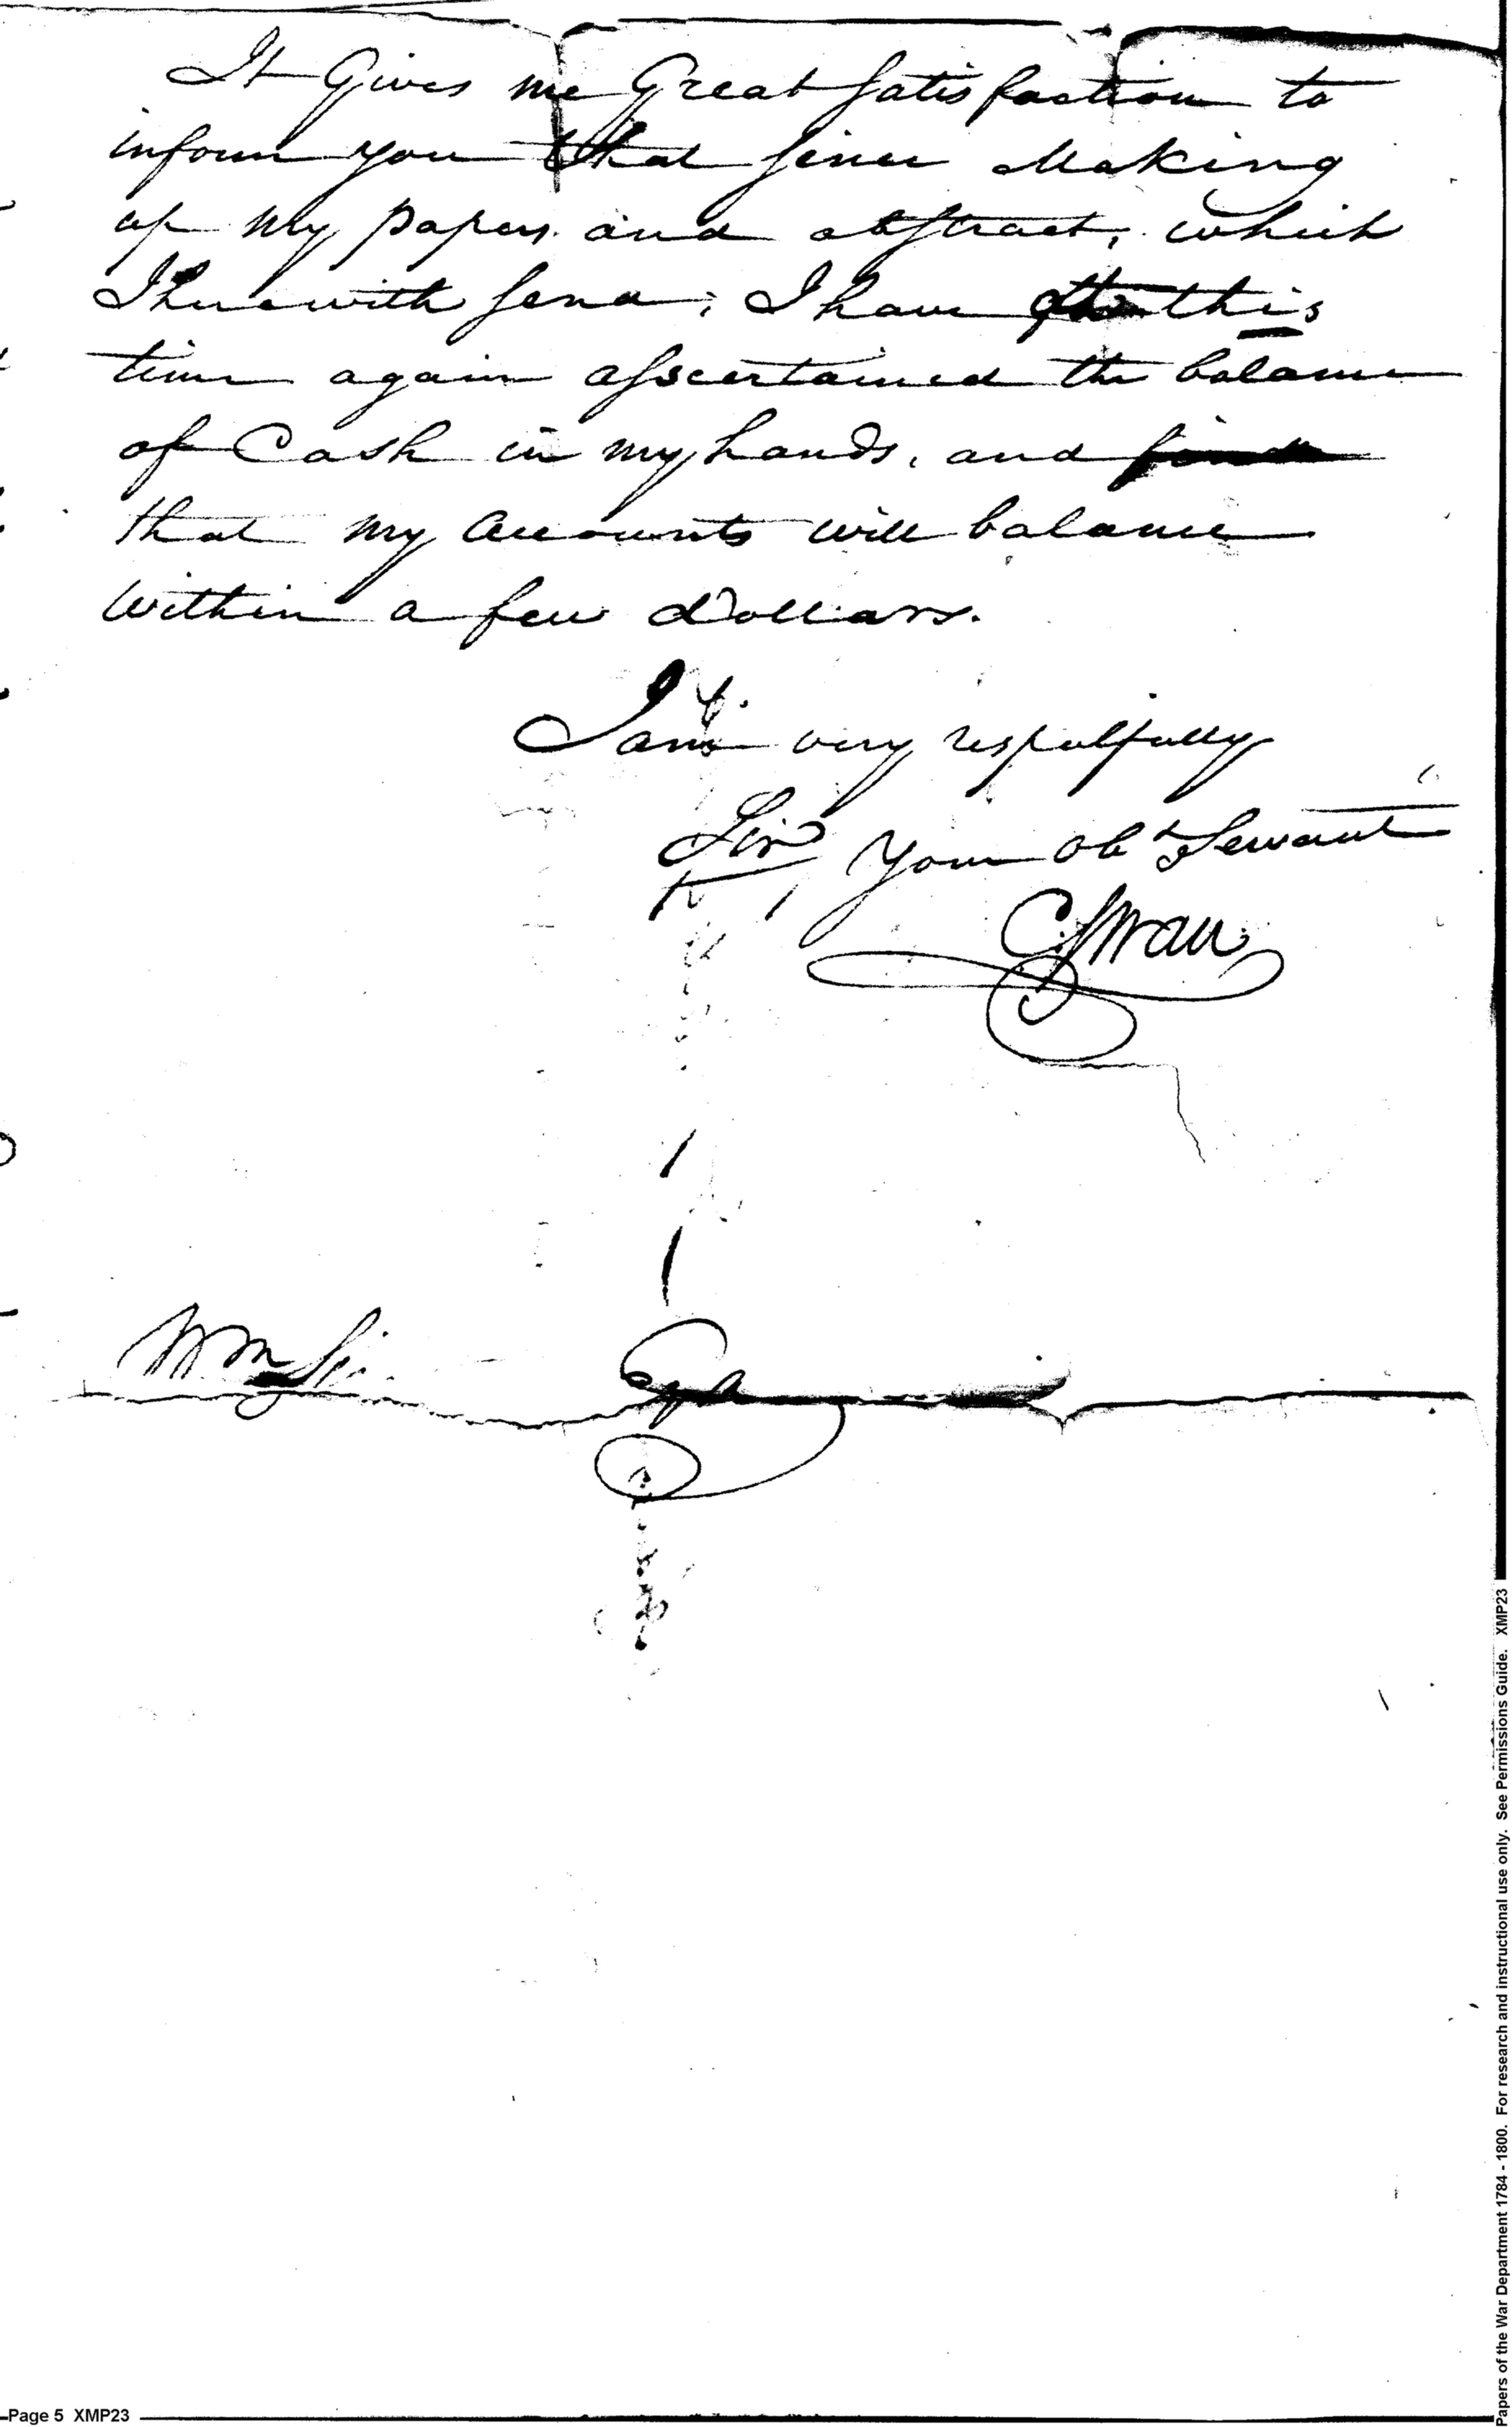 It Gives me Great Satisfaction to
inform you that since Making
up my papers and abstract, which
I herewith send; I have this
time again asscertained the balance
of Cash in my hands, and find
that my accounts will balance
within a few Dollars.
I am very respectfully
Sir Your Obt Servant
C. Swan
Wm
Page 5 XMP23
Papers of the War Department 1784 - 1800. For research and instructional use only. See Permissions Guide. XMP23